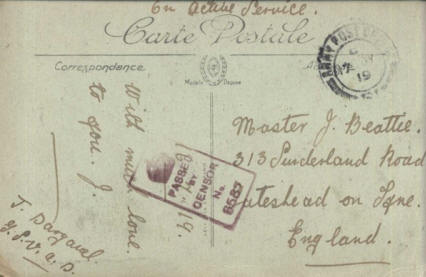 On Active Service.
Carte Postale
Correspondance
Modèle Déposé
ARMY POST OFFICE
19
With much love
to you. J.
PASSED
BY
CENSOR
No.
8587
Master J. Beattie.
313 Sunderland Road
Gateshead on Tyne.
England.